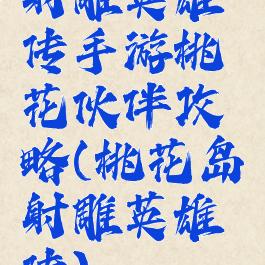 射雕英雄
传手游桃
花伙伴攻
略(桃花岛
射雕英雄
传)